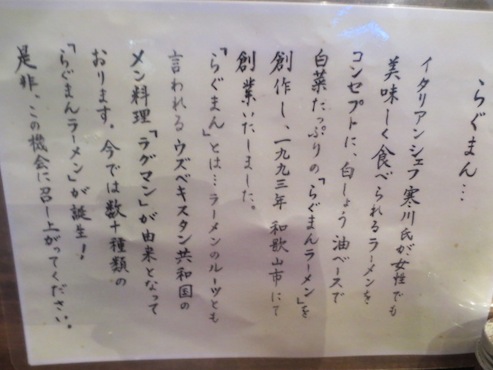 らぐまん…
イタリアンシェフ寒川氏が、女性でも
美味しく食べられるラーメンを
コンセプトに、白しょう油ベースで
白菜たっぷりの「らぐまんラーメン」を
創作し、一九九三年 和歌山市にて
創業いたしました。
「らぐまん」とは…ラーメンのルーツとも
言われるウズベキスタン共和国の
メン料理「ラグマン」が由来となって
おります。今では数十種類の
「らぐまんラーメン」が誕生!
是非、この機会に召し上がってください。